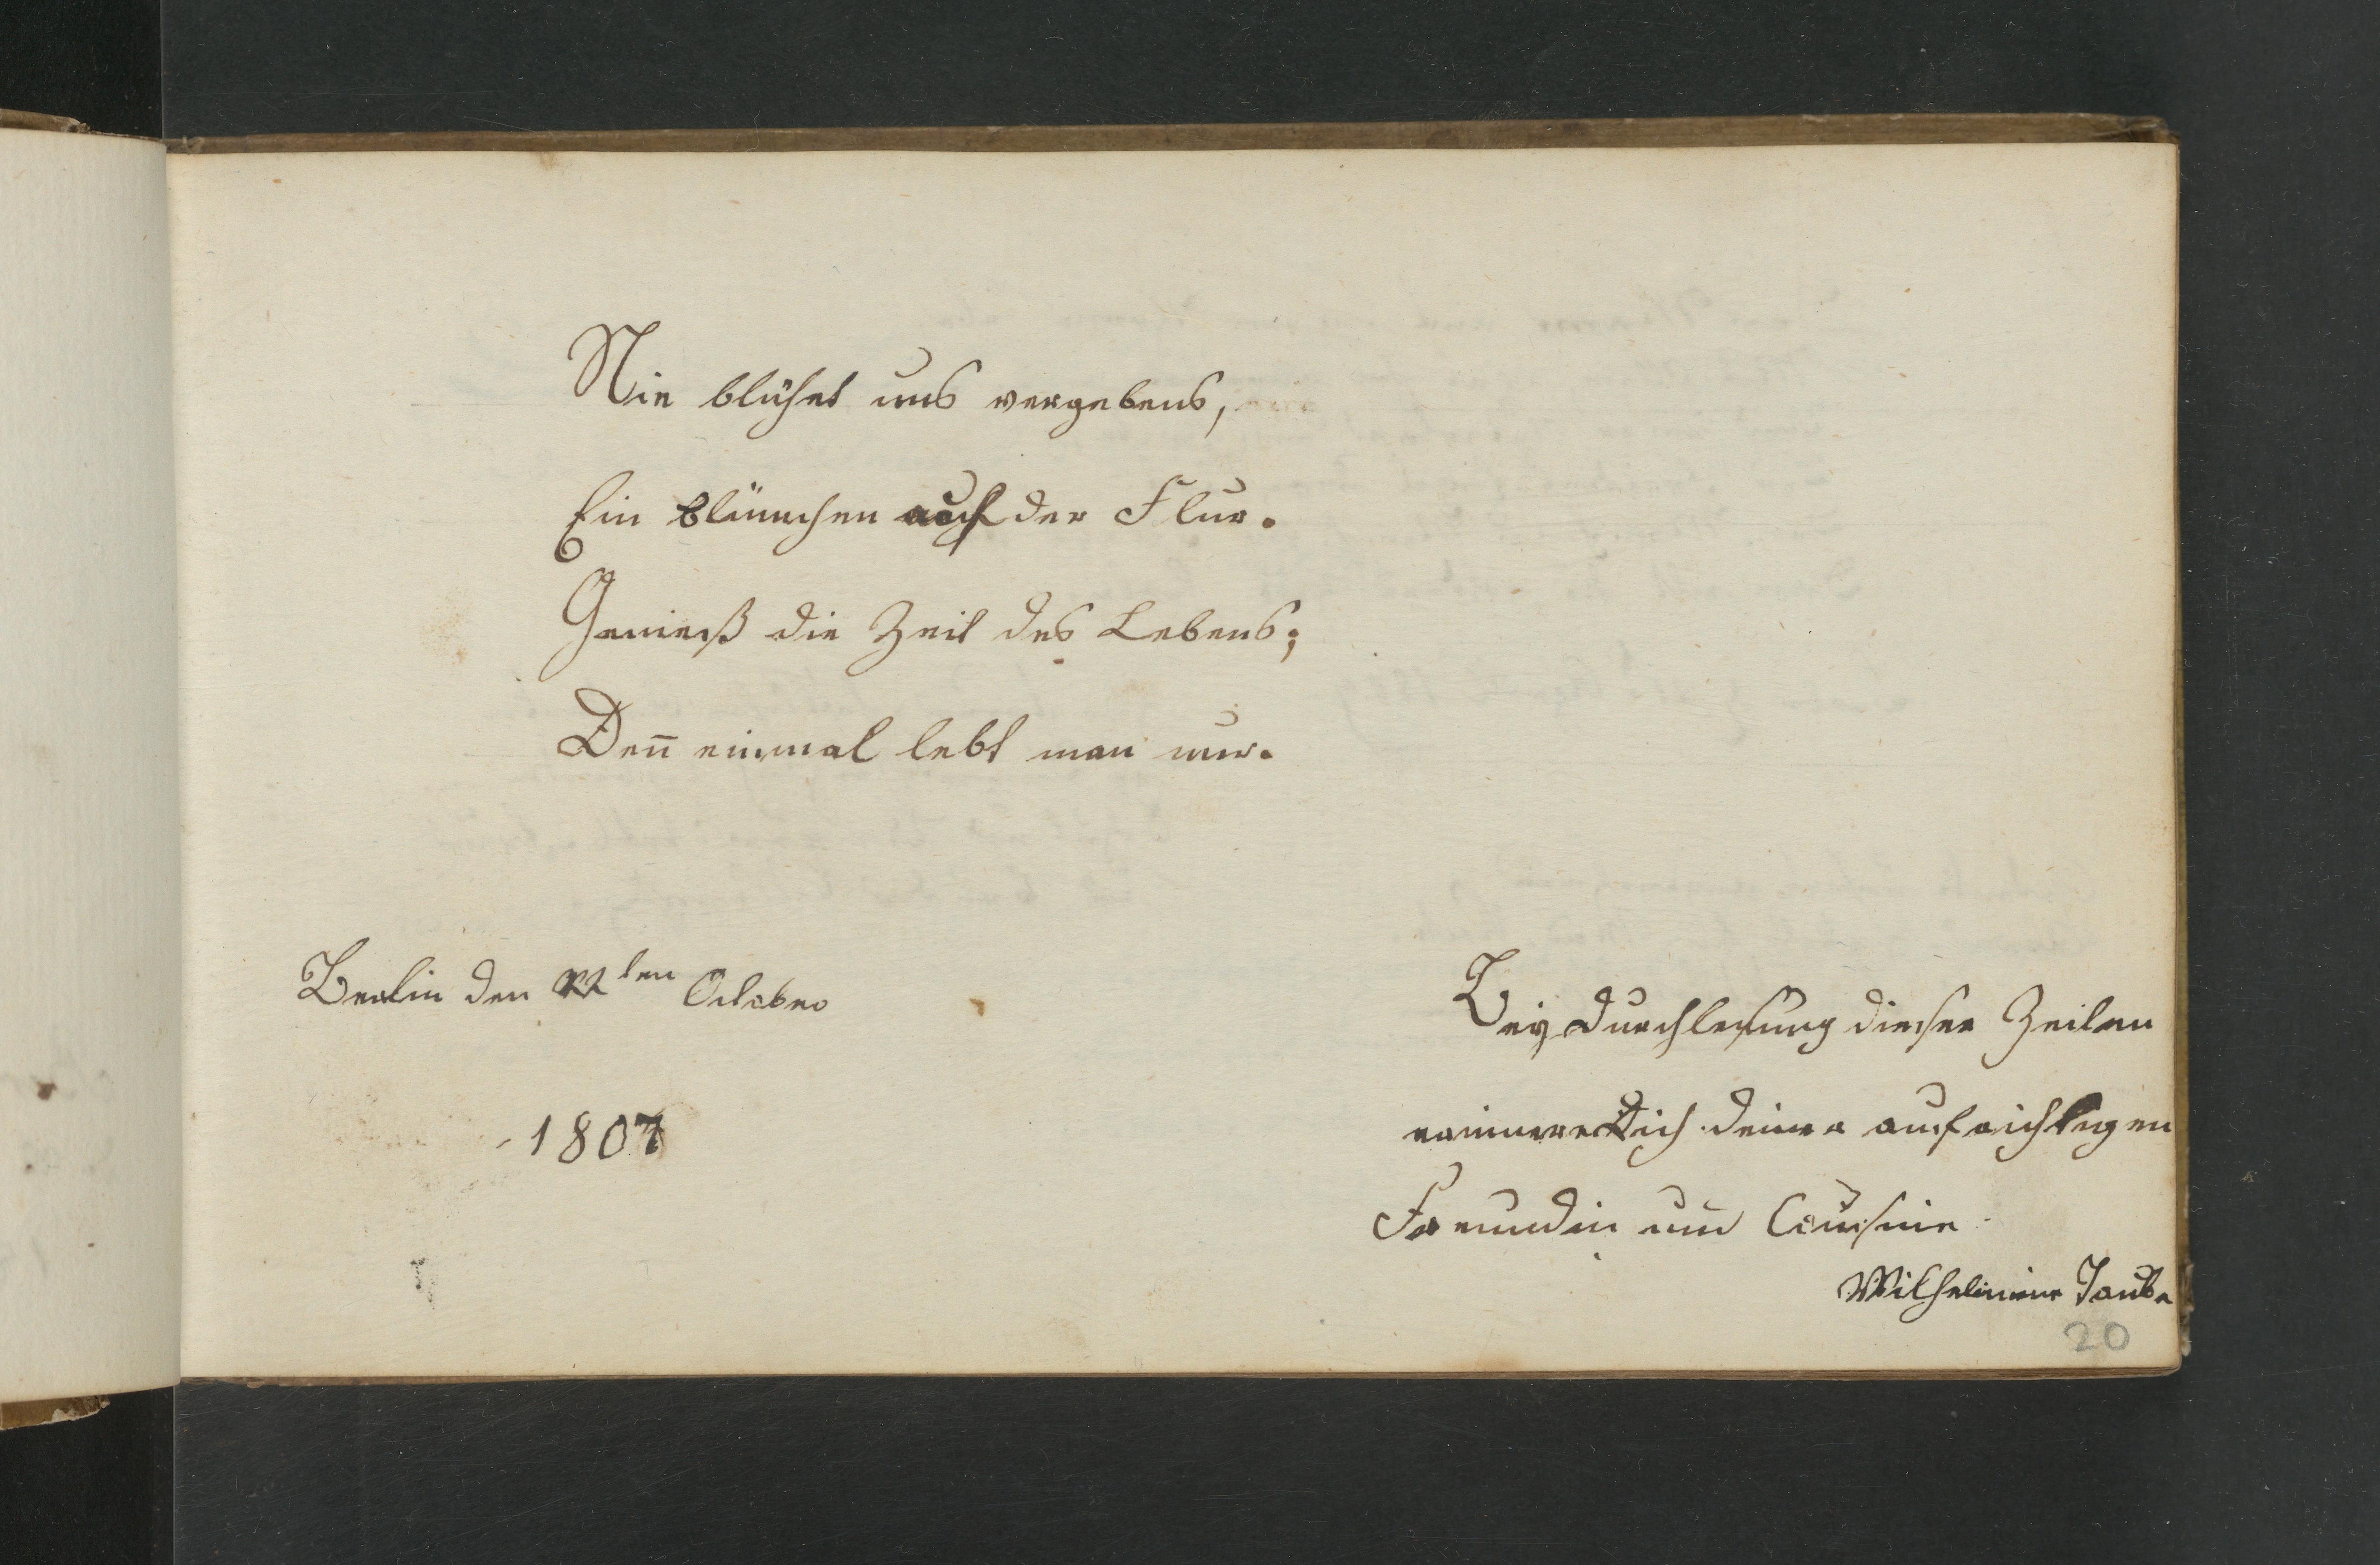 Nie blühet uns vergebens,
Ein blümchen auf der Flur.
Genieß die Zeit des Lebens;
Den̄ einmal lebt man nur.
Berlin den 22ten October
1807
Bey durchlesung dieser Zeilen
erinnere Dich deiner aufrichtigen
Freundin und Cousine
Wilhelmine Taube
20